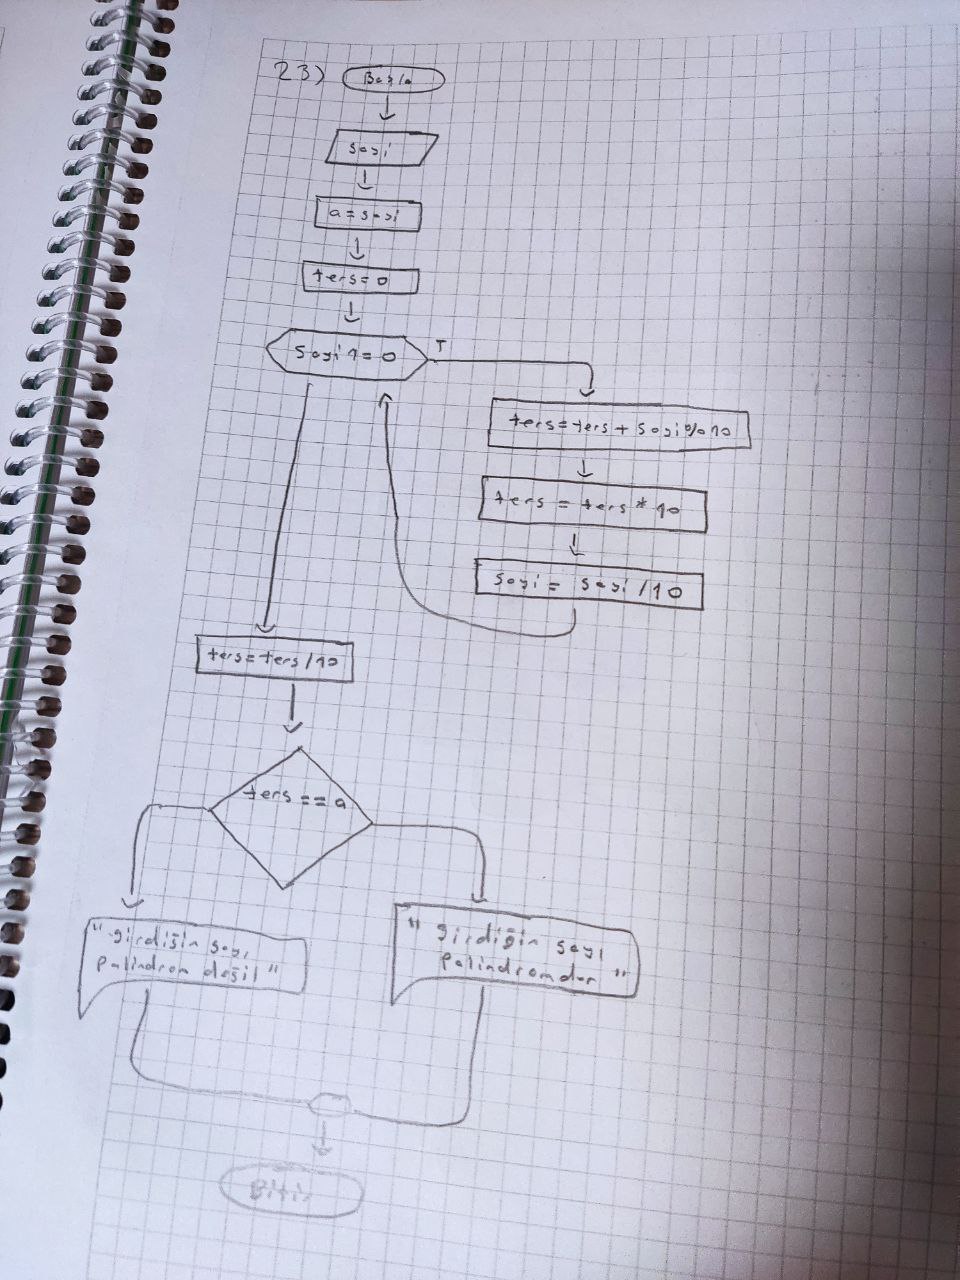 23) Başla
sayi
a = sayi
ters = 0
sayi != 0
T
ters = ters + sayi % 10
ters = ters * 10
sayi = sayi / 10
ters = ters / 10
ters == a
"girdiğin sayı
palindrom değil"
"girdiğin sayı
palindromdur"
Bitir